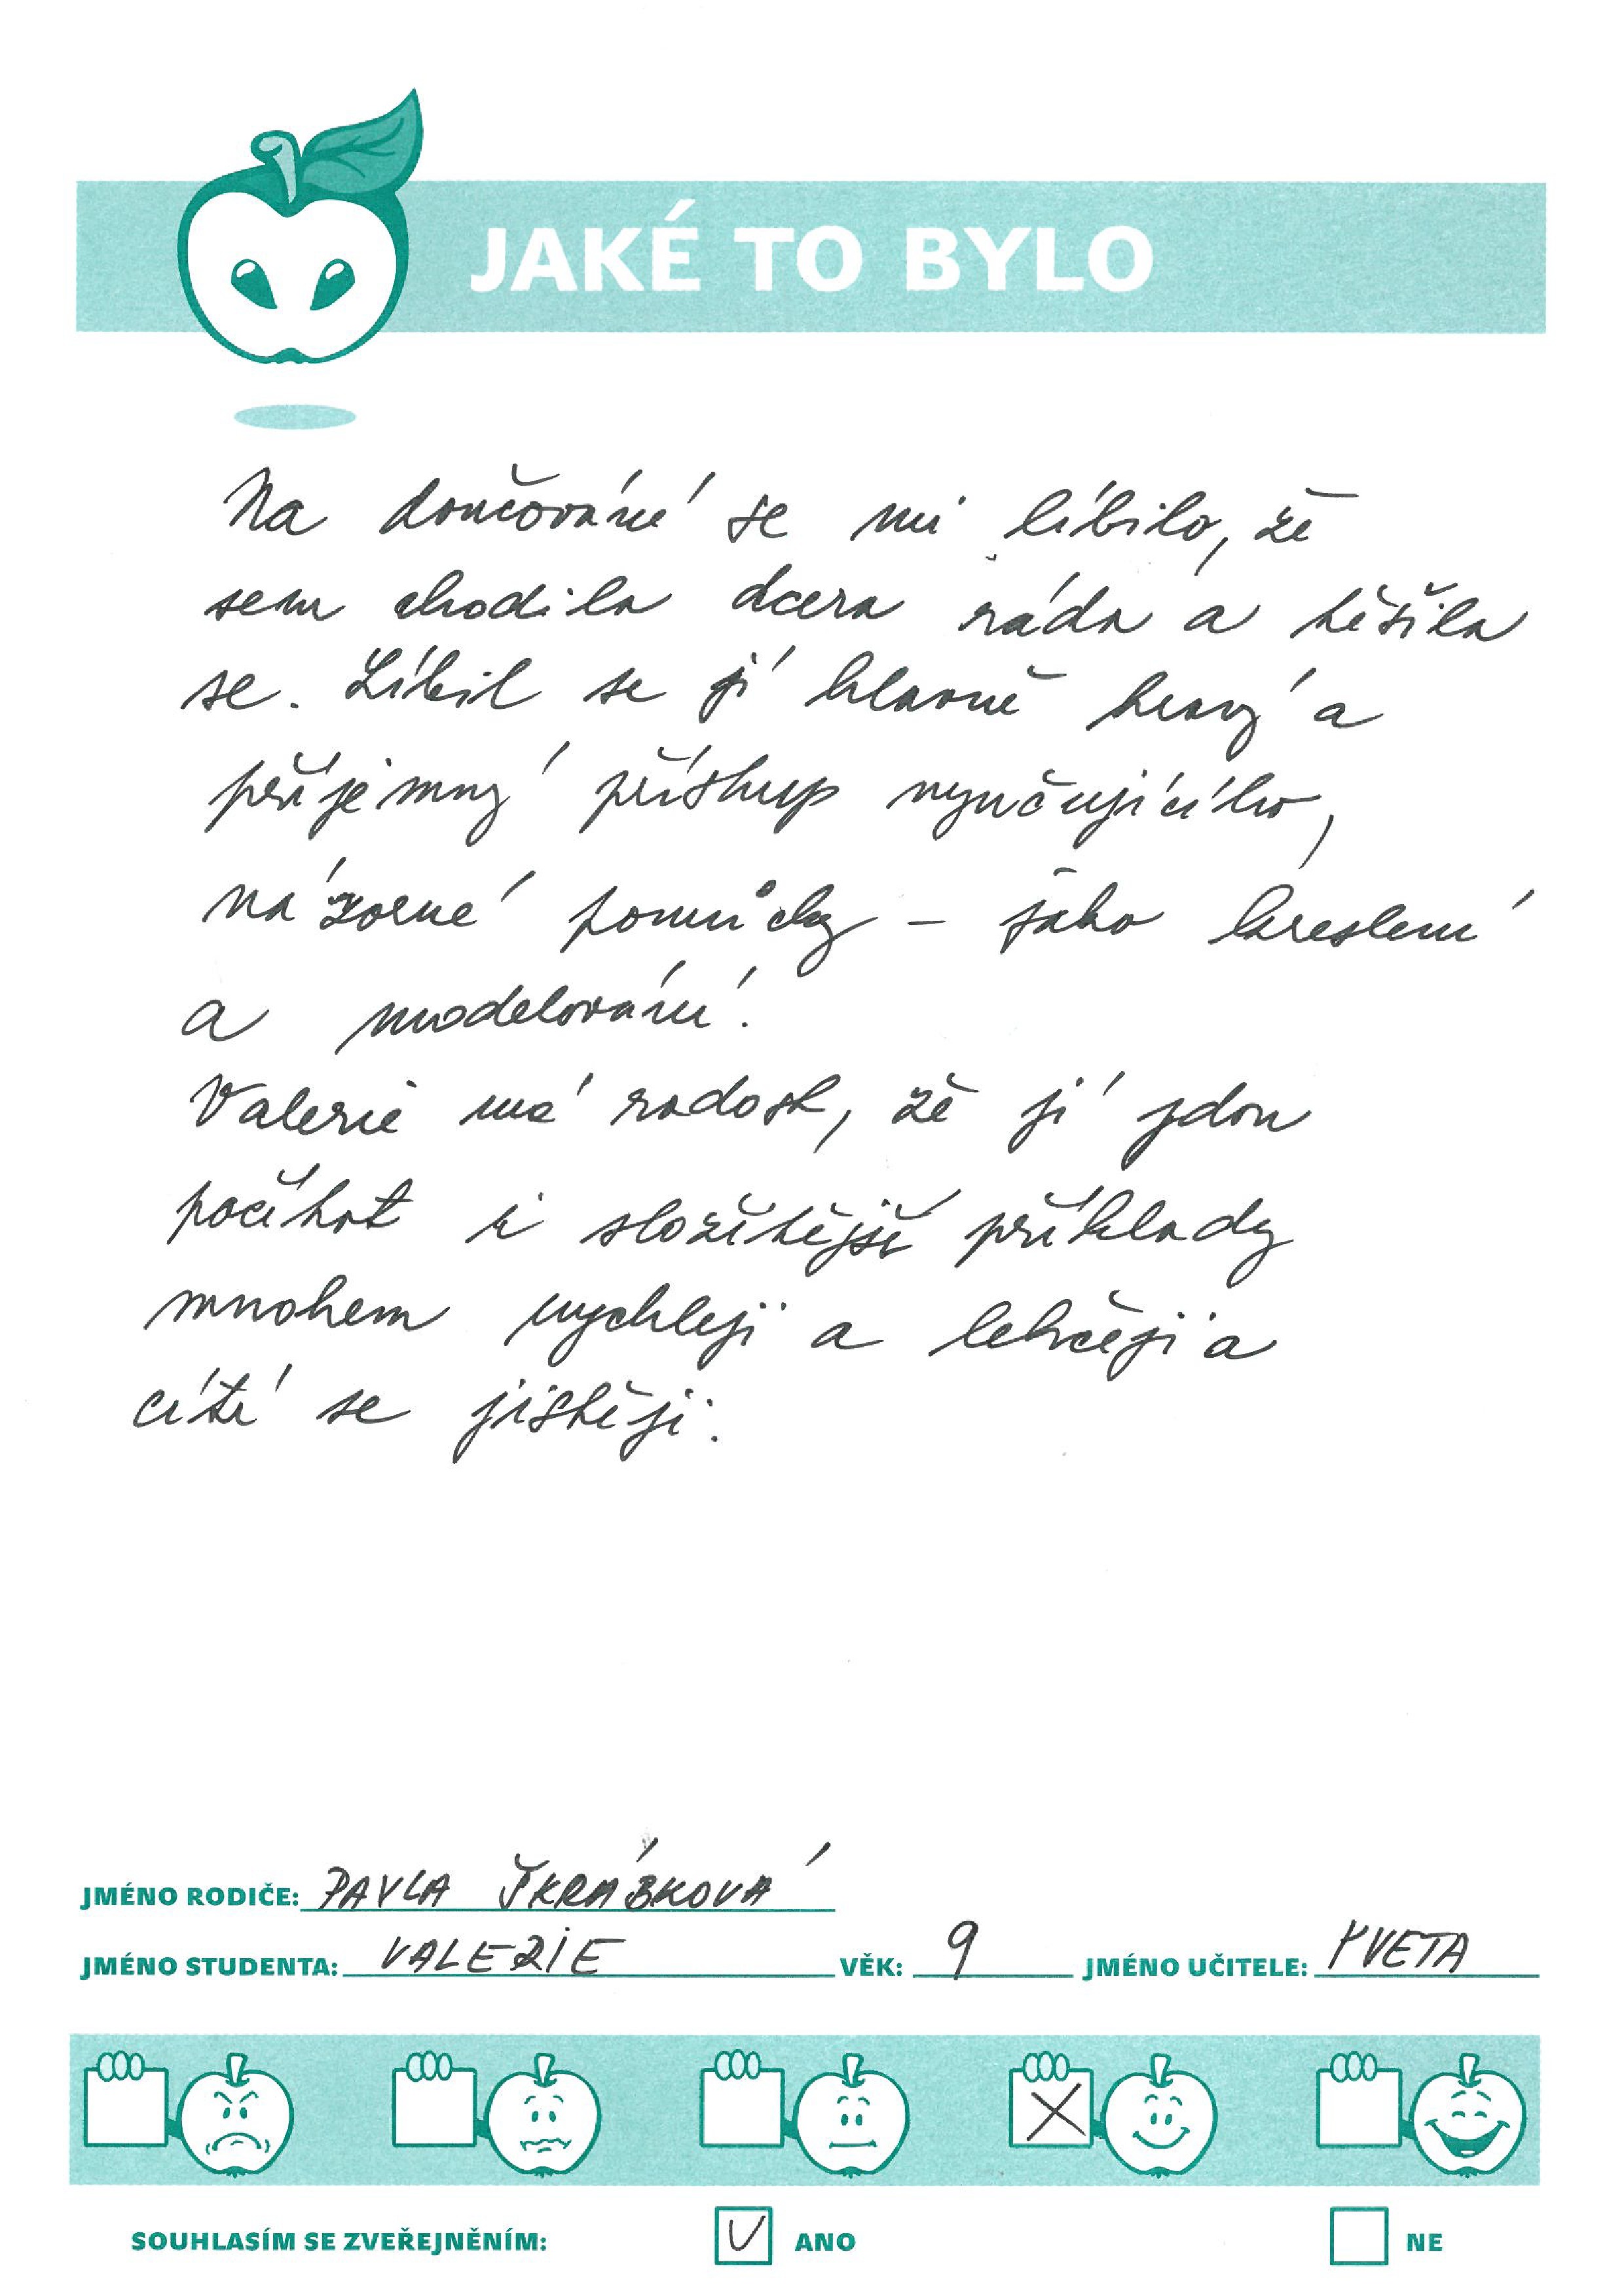 JAKÉ TO BYLO
Na doučování se mi líbilo, že
sem chodila dcera ráda a těšila
se. Líbil se jí hlavně hravý a
příjemný přístup vyučujícího,
názorné pomůcky – jako kreslení
a modelování.
Valerie má radost, že jí jdou
počítat i složitější příklady
mnohem rychleji a lehčeji a
cítí se jistěji.
JMÉNO RODIČE: PAVLA ŠKRÁBKOVÁ
JMÉNO STUDENTA: VALERIE VĚK: 9 JMÉNO UČITELE: KVETA
SOUHLASÍM SE ZVEŘEJNĚNÍM: ANO NE